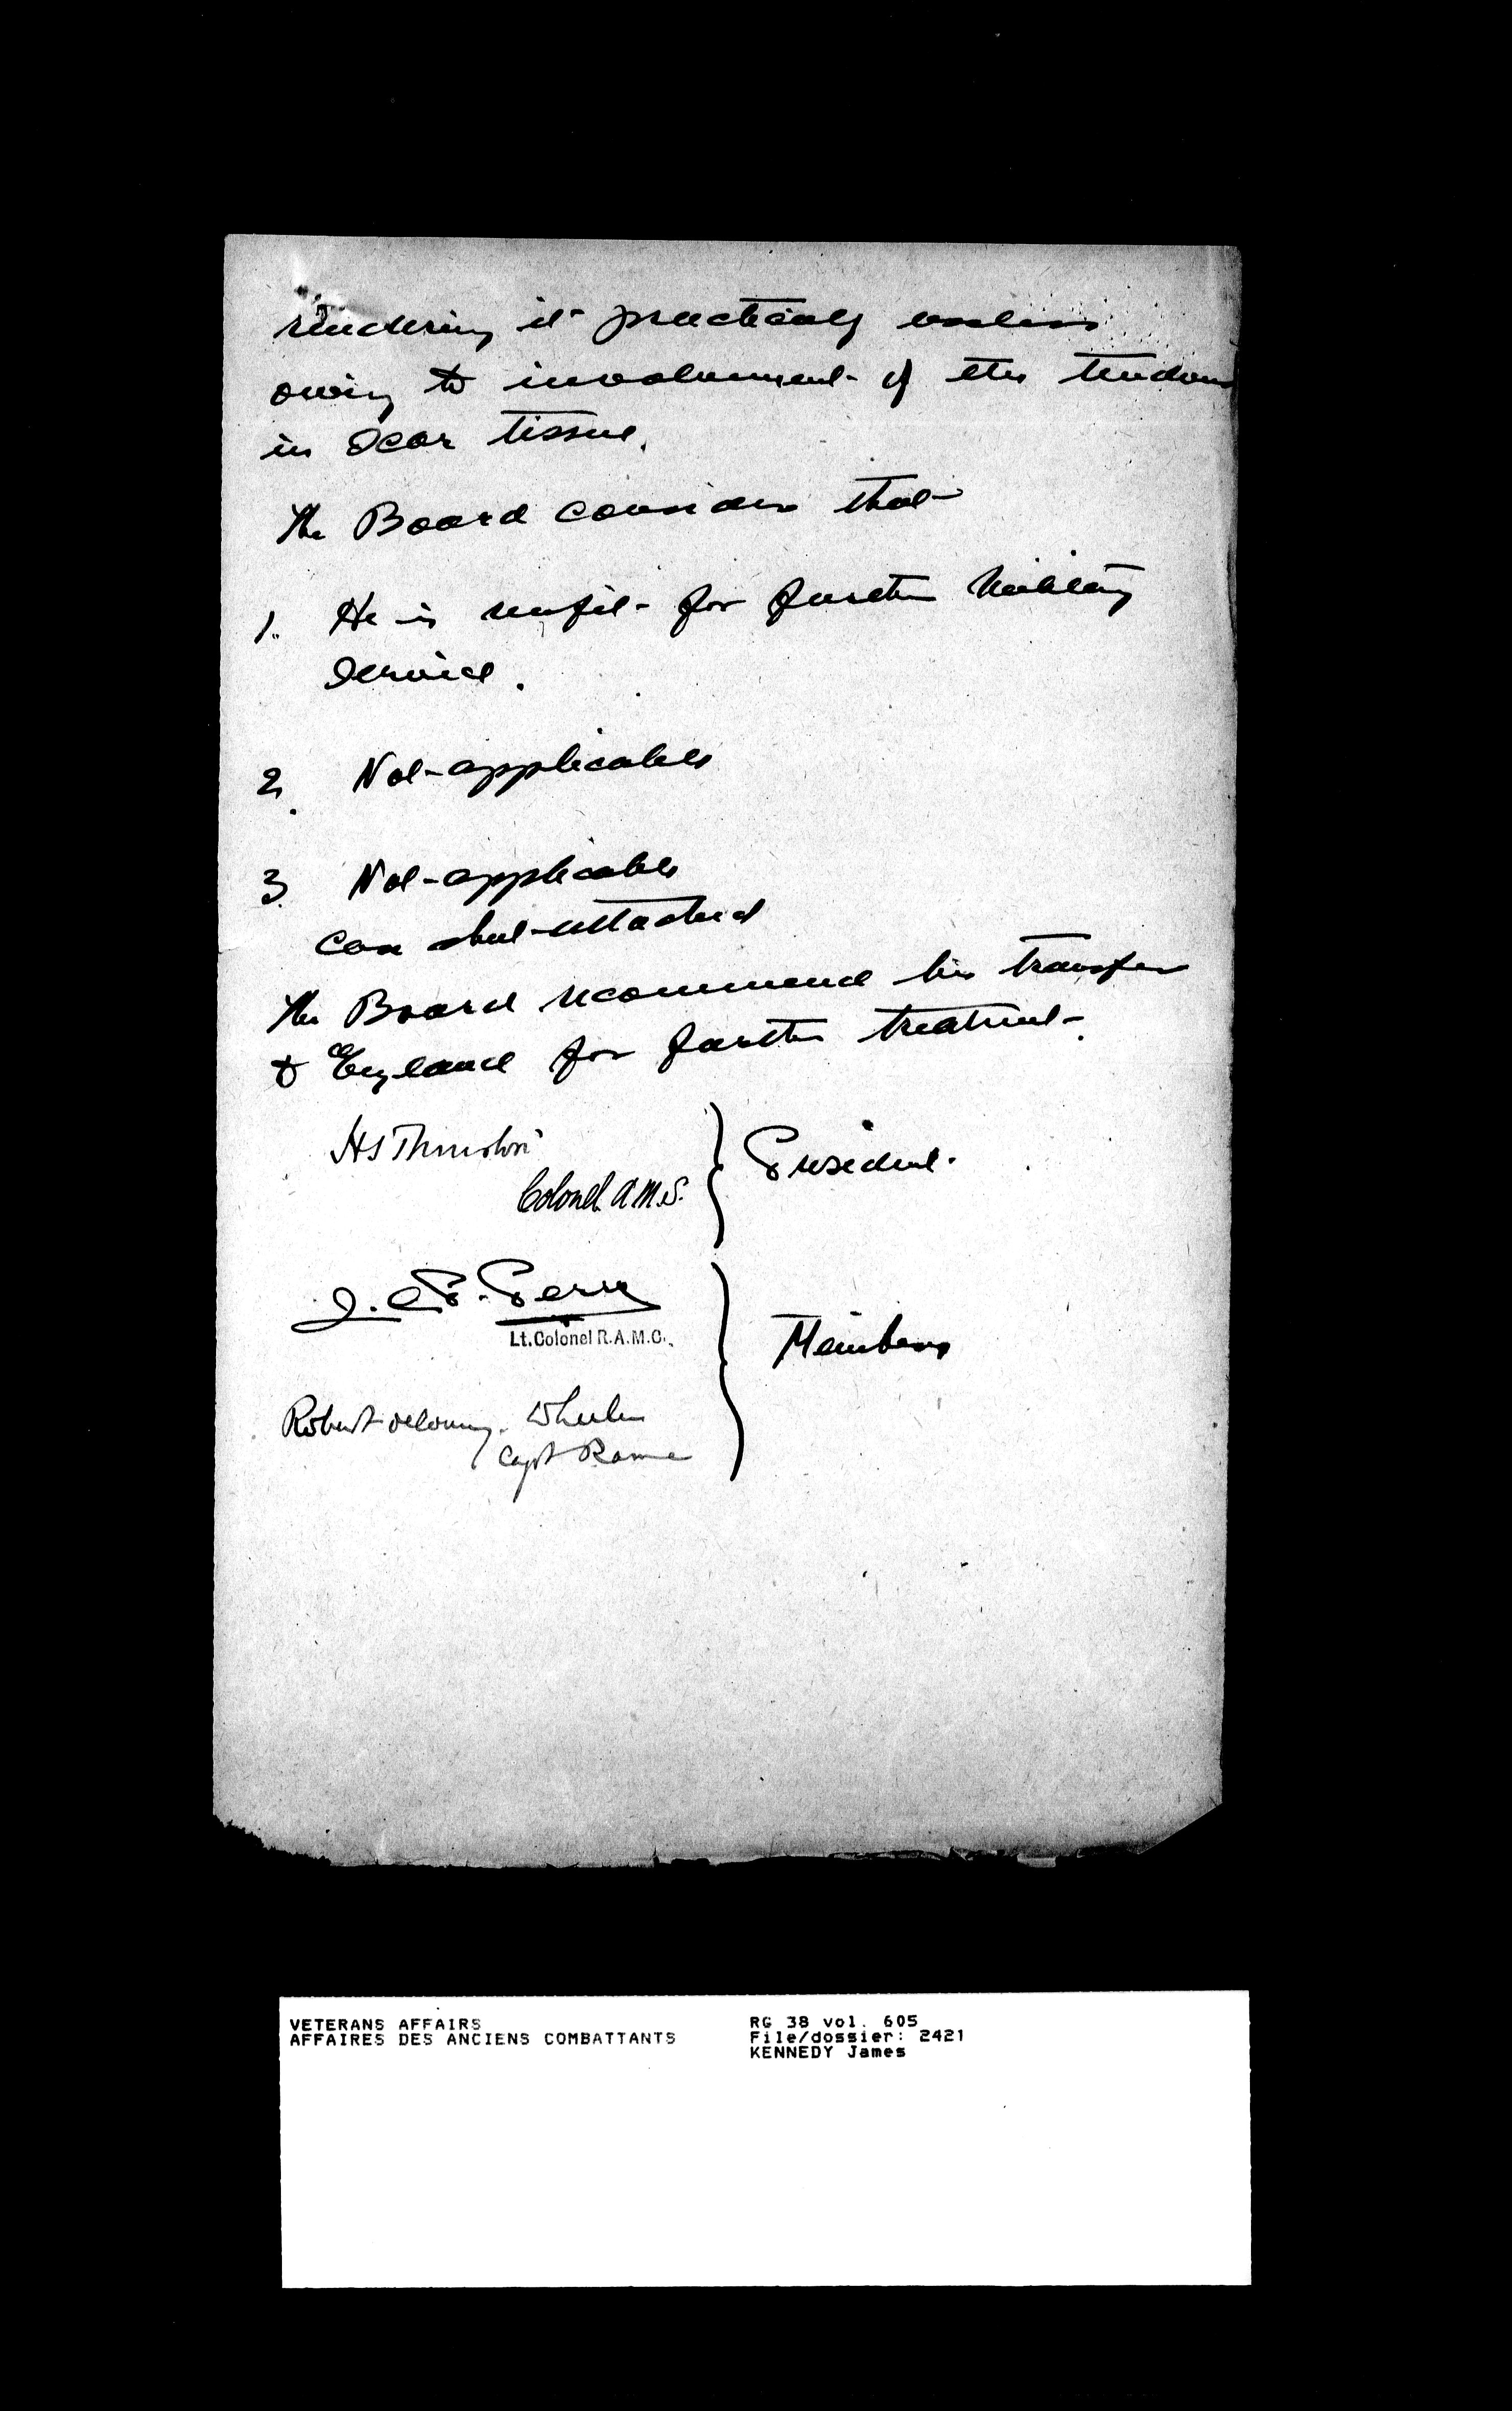 rendering it practically useless
owing to involvement of the tendons
in scar tissue.
The Board consider that
1. He is unfit for further Military
service.
2. Not applicable
3. Not applicable
Case sheet attached
The Board recommend his transfer
to England for further treatment.
HS Thurston
Colonel. A.M.S.
President.
S. Perry
Lt. Colonel R.A.M.C.
Members
Robert Wheeler
Capt Ramc
VETERANS AFFAIRS
AFFAIRES DES ANCIENS COMBATTANTS
RG 38 vol. 605
File/dossier: 2421
KENNEDY James